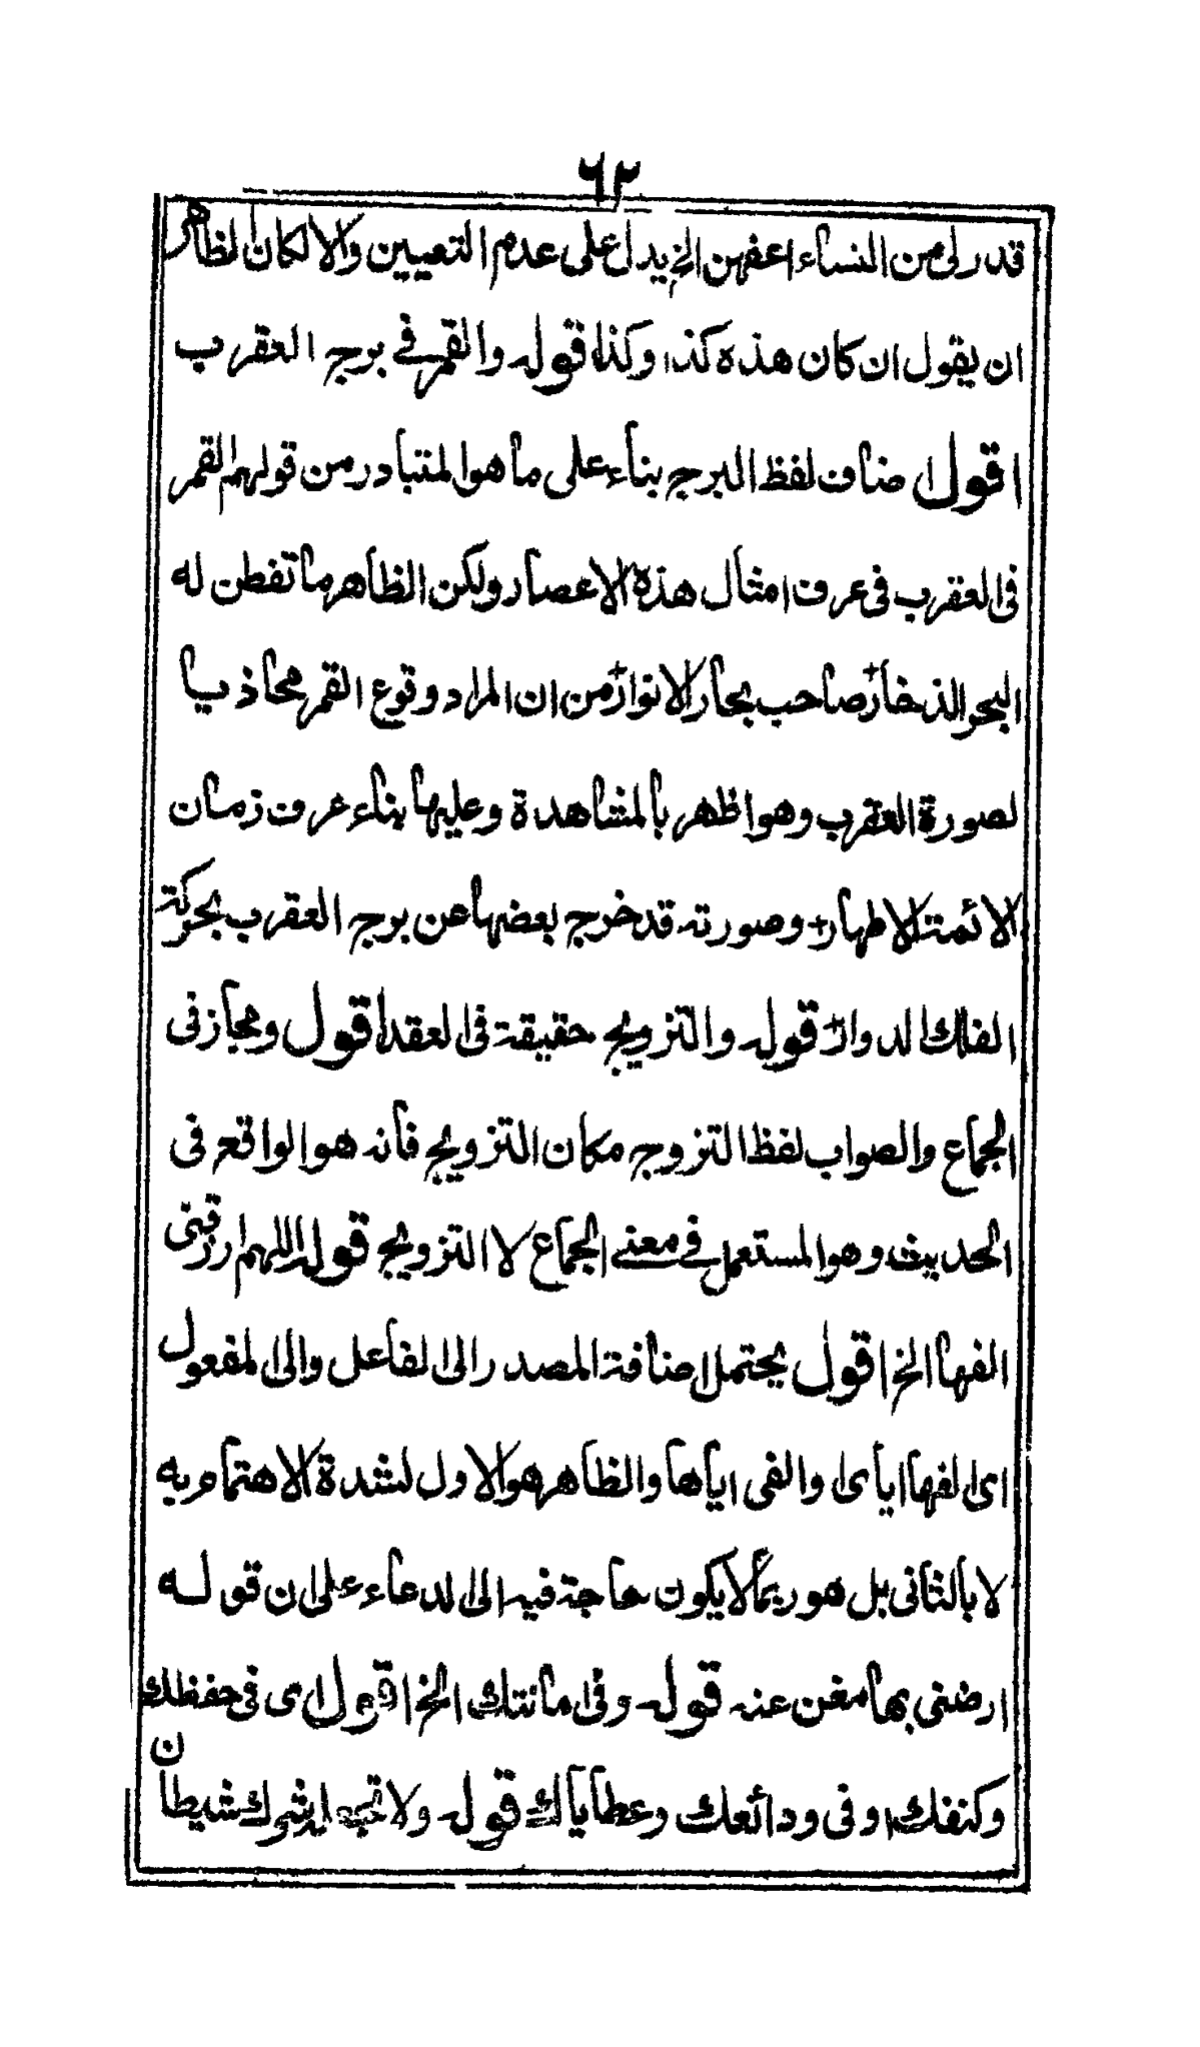 ٦٢
قدر لى من النساء اعفهن الخ يدل على عدم التعيين والا لكان المظاهر
ان يقول ان كان هذه كذا وكذا قوله والقمر فى برج العقرب
اقول اضاف لفظ البرج بناء على ما هو المتبادر من قولهم القمر
فى العقرب فى عرف امثال هذه الاعصار ولكن الظاهر ما تفطن له
البحر صاحب بحار الانوار من ان المراد وقوع القمر محاذيا
لصورة العقرب وهو اظهر بالمشاهدة وعليها بناء عرف زمان
الائمة الاطهار وصورته قد خرج بعضها عن برج العقرب بحركة
الفلك الدوار قوله والتزويج حقيقة فى العقد اقول ومجاز فى
الجماع والصواب لفظ التزوج مكان التزويج فانه هو الواقع فى
الحديث وهو المستعمل فى معنى الجماع لا التزويج قوله اللهم ارزقنى
الفها الخ اقول يحتمل اضافة المصدر الى الفاعل والى المفعول
اى الفها اياى والفى اياها والظاهر هو الاول لشدة الاهتمام به
لا بالثانى بل هو ربما لا يكون حاجة فيه الى الدعاء على ان قوله
ارضنى بها مغن عنه قوله وفى امانتك الخ اقول اى فى حفظك
وكنفك او فى ودائعك وعطاياك قوله ولا تجعله شرك شيطان